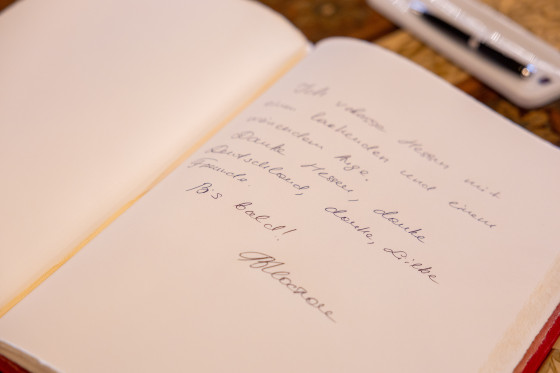 Ich verlasse Hessen mit
einem lachenden und einem
weinendem Auge.
Danke Hessen, danke
Deutschland, danke, Liebe
Freunde
Bis bald!